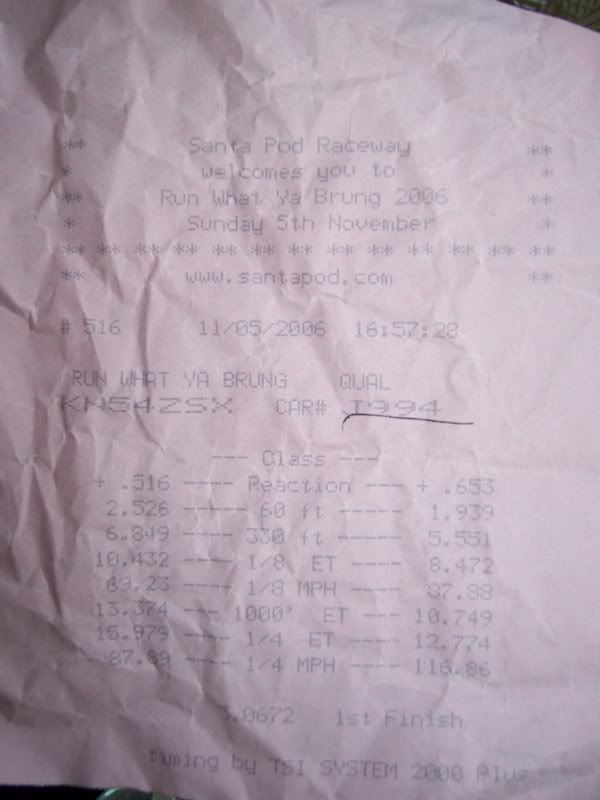 ** Santa Pod Raceway **
* welcomes you to *
** Run What Ya Brung 2006 **
* Sunday 5th November *
** ** ** ** ** ** ** ** ** ** ** ** ** **
** www.santapod.com **
# 516 11/05/2006 16:57:28
RUN WHAT YA BRUNG QUAL
KN54ZSX CAR# J994
--- Class ---
+ .516 ---- Reaction --- + .653
2.526 ----- 60 ft ----- 1.939
6.849 ----- 330 ft ----- 5.551
10.432 ---- 1/8 ET ---- 8.472
69.23 ---- 1/8 MPH ---- 87.88
13.374 --- 1000' ET --- 10.749
15.979 ---- 1/4 ET ---- 12.774
87.89 ---- 1/4 MPH ---- 116.86
3.0672 1st Finish
timing by TSI SYSTEM 2000 Plus